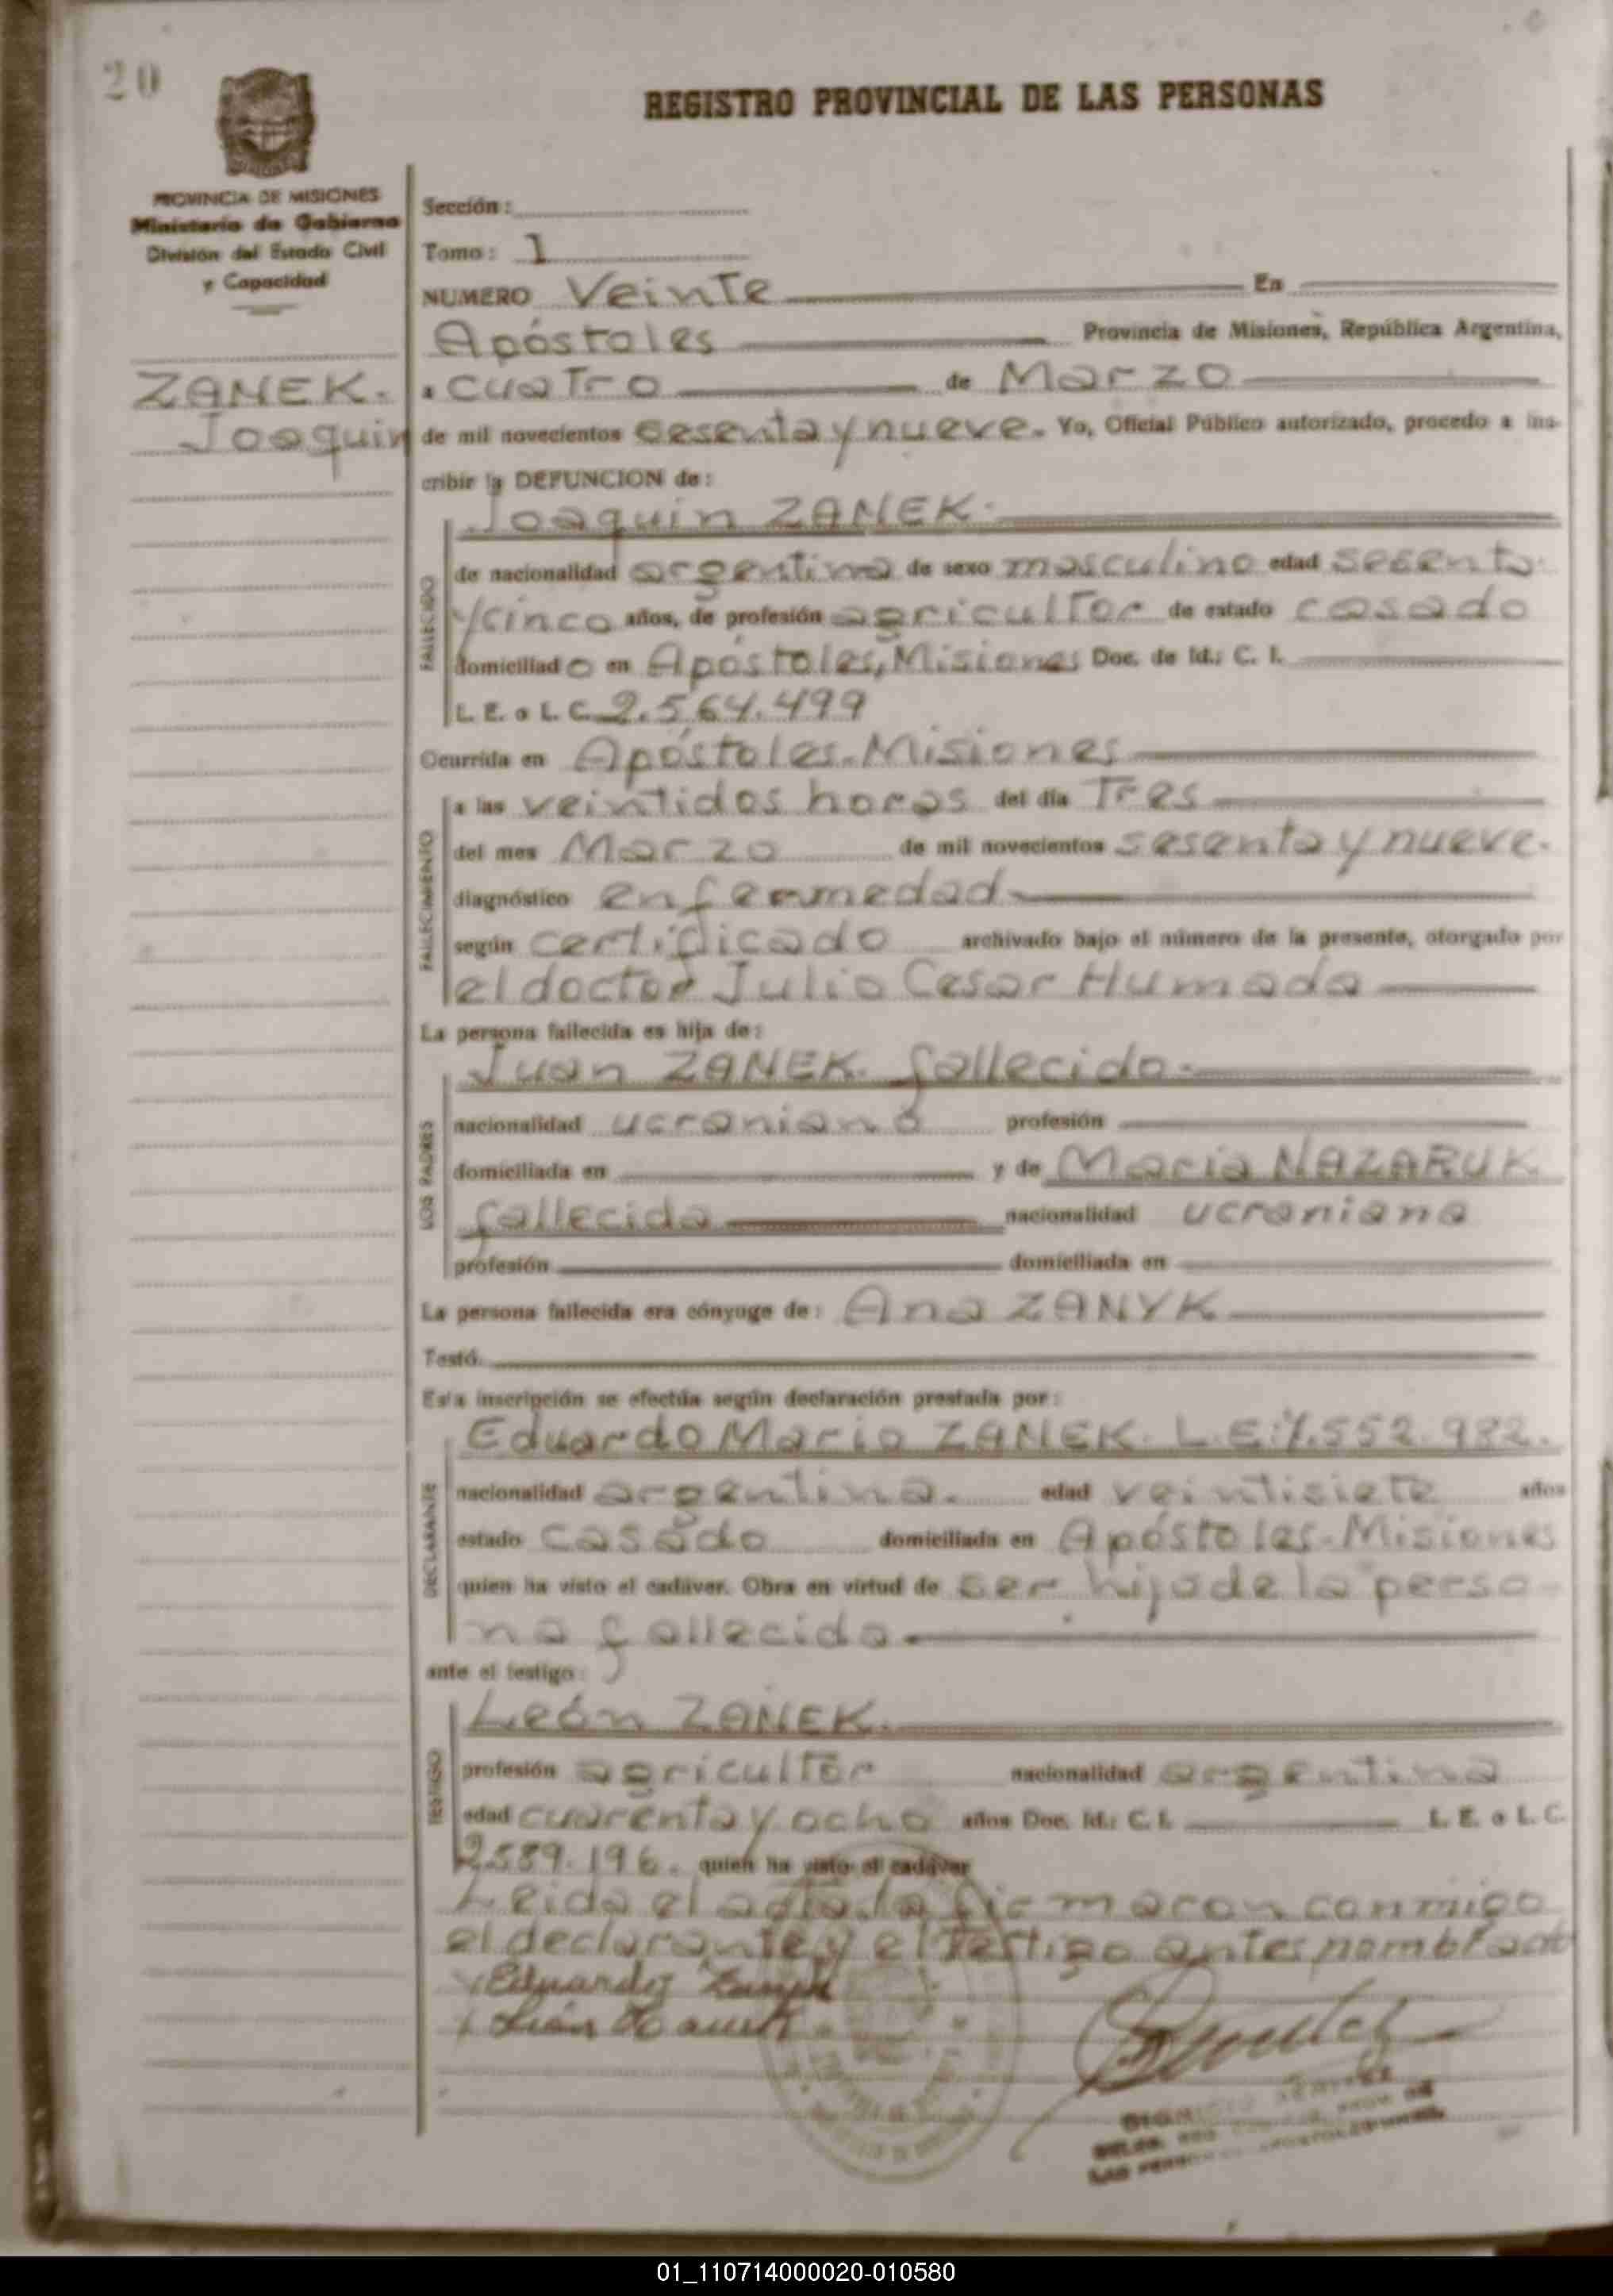 20
REGISTRO PROVINCIAL DE LAS PERSONAS
PROVINCIA DE MISIONES
Ministerio de Gobierno
División del Estado Civil
y Capacidad
ZANEK.
Joaquin
Sección:
Tomo: 1
NUMERO Veinte En
Apóstoles Provincia de Misiones, República Argentina,
a cuatro de Marzo
de mil novecientos sesenta y nueve. Yo, Oficial Público autorizado, procedo a ins-
cribir la DEFUNCION de:
Joaquin ZANEK.
FALLECIDO
de nacionalidad argentina de sexo masculino edad sesenta
y cinco años, de profesión agricultor de estado casado
domiciliado en Apóstoles, Misiones Doc. de Id.: C. I.
L. E. o L. C. 2.564.499
Ocurrida en Apóstoles-Misiones
FALLECIMIENTO
a las veintidos horas del día Tres
del mes Marzo de mil novecientos sesenta y nueve.
diagnóstico enfermedad
según certificado archivado bajo el número de la presente, otorgado por
el doctor Julio Cesar Humada
La persona fallecida es hija de:
LOS PADRES
Juan ZANEK. fallecido.
nacionalidad ucraniano profesión
domiciliada en y de Maria NAZARUK
fallecida nacionalidad ucraniana
profesión domiciliada en
La persona fallecida era cónyuge de: Ana ZANYK
Testó.
Esta inscripción se efectúa según declaración prestada por:
DECLARANTE
Eduardo Mario ZANEK. L.E: 552.982.
nacionalidad argentina. edad veintisiete años
estado casado domiciliada en Apóstoles-Misiones
quien ha visto el cadáver. Obra en virtud de ser hijo de la perso-
na fallecida.
ante el testigo:
TESTIGO
León ZANEK.
profesión agricultor nacionalidad argentina
edad cuarenta y ocho años Doc. Id.: C. I. L. E. o L. C.
2589.196. quien ha visto el cadáver
Leida el acta, la firmaron conmigo
el declarante y el Testigo antes nombrado
Eduardo
León
LAS PERSONAS
01_110714000020-010580